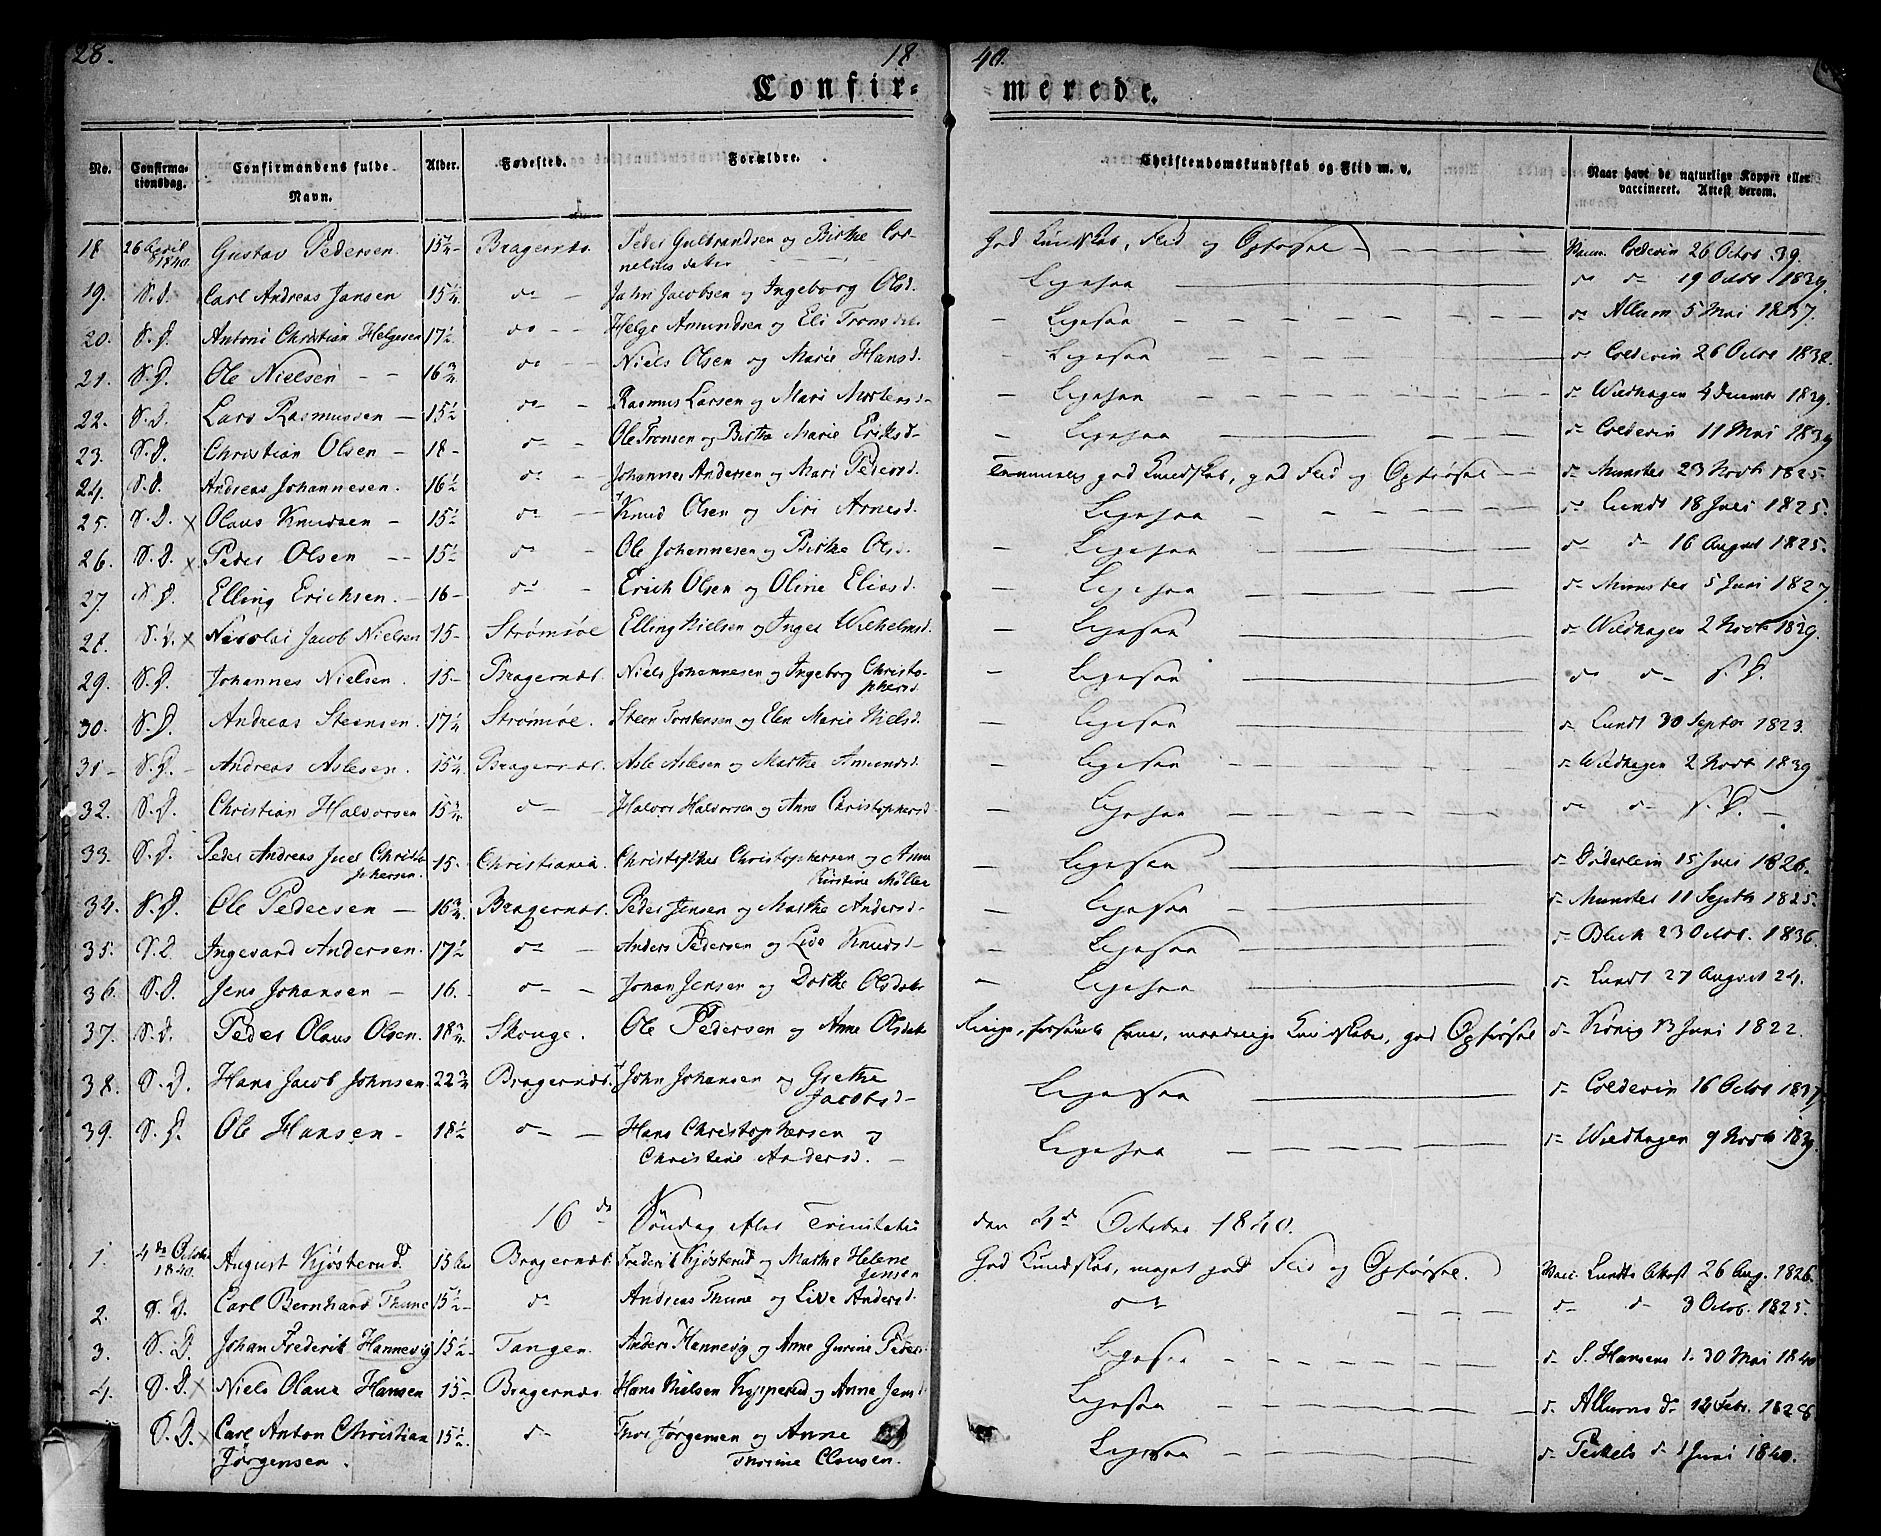 28.
18
40.
Confir-
merede.
No.
Confirma-
tionsdag.
Confirmandens fulde
Navn.
Alder.
Fødested.
Forældre.
Christendomskundskab og Flid m. v.
Naar havt de naturlige Kopper eller
vaccineret. Attest derom.
18 26 April 1840. Gustav Pedersen. 15 1/4 Bragernæs. Peder Gulbrandsen og Birthe Cor- God Kundskab, Flid og Opførsel Vacc. Colderin 26 Octbr. 39.
nelius datter
19. S. D. Carl Andreas Jansen 15 1/4 do Jahn Jacobsen og Ingeborg Olsd. Ligesaa do do 19 Octbr 1839.
20. S. D. Antoni Christian Helgesen 17 1/2 do Helge Amundsen og Eli Tronsdat. Ligesaa do Allum 5 Mai 1837.
21. S. D. Ole Nielsen 16 3/4 do Niels Olsen og Marie Hansd. Ligesaa do Colderin 26 Octbr 1838.
22. S. D. Lars Rasmussen 15 1/2 do Rasmus Larsen og Mari Mortensd. Ligesaa do Wiedhagen 4 December 1839.
23. S. D. Christian Olsen 18 do Ole Tronsen og Birthe Marie Eriksd. Ligesaa do Colderin 11 Mai 1839
24. S. D. Andreas Johannesen. 16 1/2 do Johannes Andersen og Mari Pedersd. Temmelig god Kundskab, god Flid og Opførsel do Munster 23 Novb 1825.
25. S. D. x Olaus Knudsen 15 1/2 do Knud Olsen og Siri Arnesd. Ligesaa do Lundt 18 Juli 1825.
26. S. D. x Peder Olsen 15 1/2 do Ole Johannesen og Birthe Olsd. Ligesaa do do 16 August 1825.
27. S. D. Elling Erichsen. 16 do Erich Olsen og Oline Eliasd. Ligesaa do Munster 5 Juni 1827.
28. S. D. x Nicolai Jacob Nielsen 15 Strømsøe Elling Nielsen og Inger Wilhelmsd. Ligesaa do Wiedhagen 2 Novb 1839.
29. S. D. Johannes Nielsen. 15 Bragernæs. Niels Johannesen og Ingeborg Christo- Ligesaa do do S. D.
phersd.
30. S. D. Andreas Steensen. 17 1/4 Strømsøe. Steen Torstensen og Elen Marie Nielsd. Ligesaa do Lundt 30 Septbr 1823.
31 S. D. Andreas Aslesen. 15 1/4 Bragernæs. Asle Aslesen og Marthe Amundsd. Ligesaa do Wiedhagen 2 Novb 1839
32. S. D. Christian Halvorsen 15 3/4 do Halvor Halvorsen og Anne Christophersd. Ligesaa do do S. D.
33. S. D. Peder Andreas Juel Christo- 15. Christiania. Christopher Christophersen og Anne Ligesaa do Döderlein 15 Juli 1826.
phersen. Kirstine Möller
34. S. D. Ole Pedersen 16 3/4 Bragernæs. Peder Jensen og Marthe Andersd. Ligesaa do Munster 11 Septb 1825.
35. S. D. Ingevard Andersen. 17 1/2 do Anders Pedersen og Live Knudsd. Ligesaa do Blich 23 Octob. 1836.
36. S. D. Jens Johansen 16. do Johan Jensen og Dorthe Olsdatr Ligesaa do Lundt 27 August 24.
37. S. D. Peder Olaus Olsen. 18 3/4 Skouge. Ole Pedersen og Anne Olsdatr Ringe, forsømte Evne, maadelige Kundskaber, god Opførsel do König 13 Juni 1822.
38. S. D. Hans Jacob Johnsen. 22 3/4 Bragernæs. John Johansen og Grethe Ligesaa do Colderin 16 Octbr 1837.
Jacobsd
39. S. D. Ole Hansen 18 1/2 do Hans Christophersen og Ligesaa do Wiedhagen 9 Novb 1839.
Christine Andersd.
16 de Söndag efter Trinitatis den 4de October 1840.
1. 4de Octobr 1840. August Kjøsterud. 15 Aar Bragernæs. Frederik Kjøsterud og Marthe Helene God Kundskab, meget god Flid og Opførsel. Vacc. Lundts Attest 26 Aug. 1826.
Jensen
2. S. D. Carl Bernhard Thune 15 1/2 do Andreas Thune og Live Andersd. do do do 3 Octob. 1825.
3. S. D. Johan Frederik Hannevig 15 1/2 Tangen. Anders Hannevig og Anne Jurine Peders. Ligesaa do S. Hansens d. 30 Mai 1840
4. S. D. x Niels Olaus Hansen 15 Bragernæs. Hans Nielsen Kopperud og Anne Jensd. Ligesaa do Allums do 12 Febr. 1828
S. D. x Carl Anton Christian 15 1/2. do Thor Jørgensen og Anne Ligesaa do Peckels do 1 Juni 1840.
Jørgensen. Thorine Clausen.